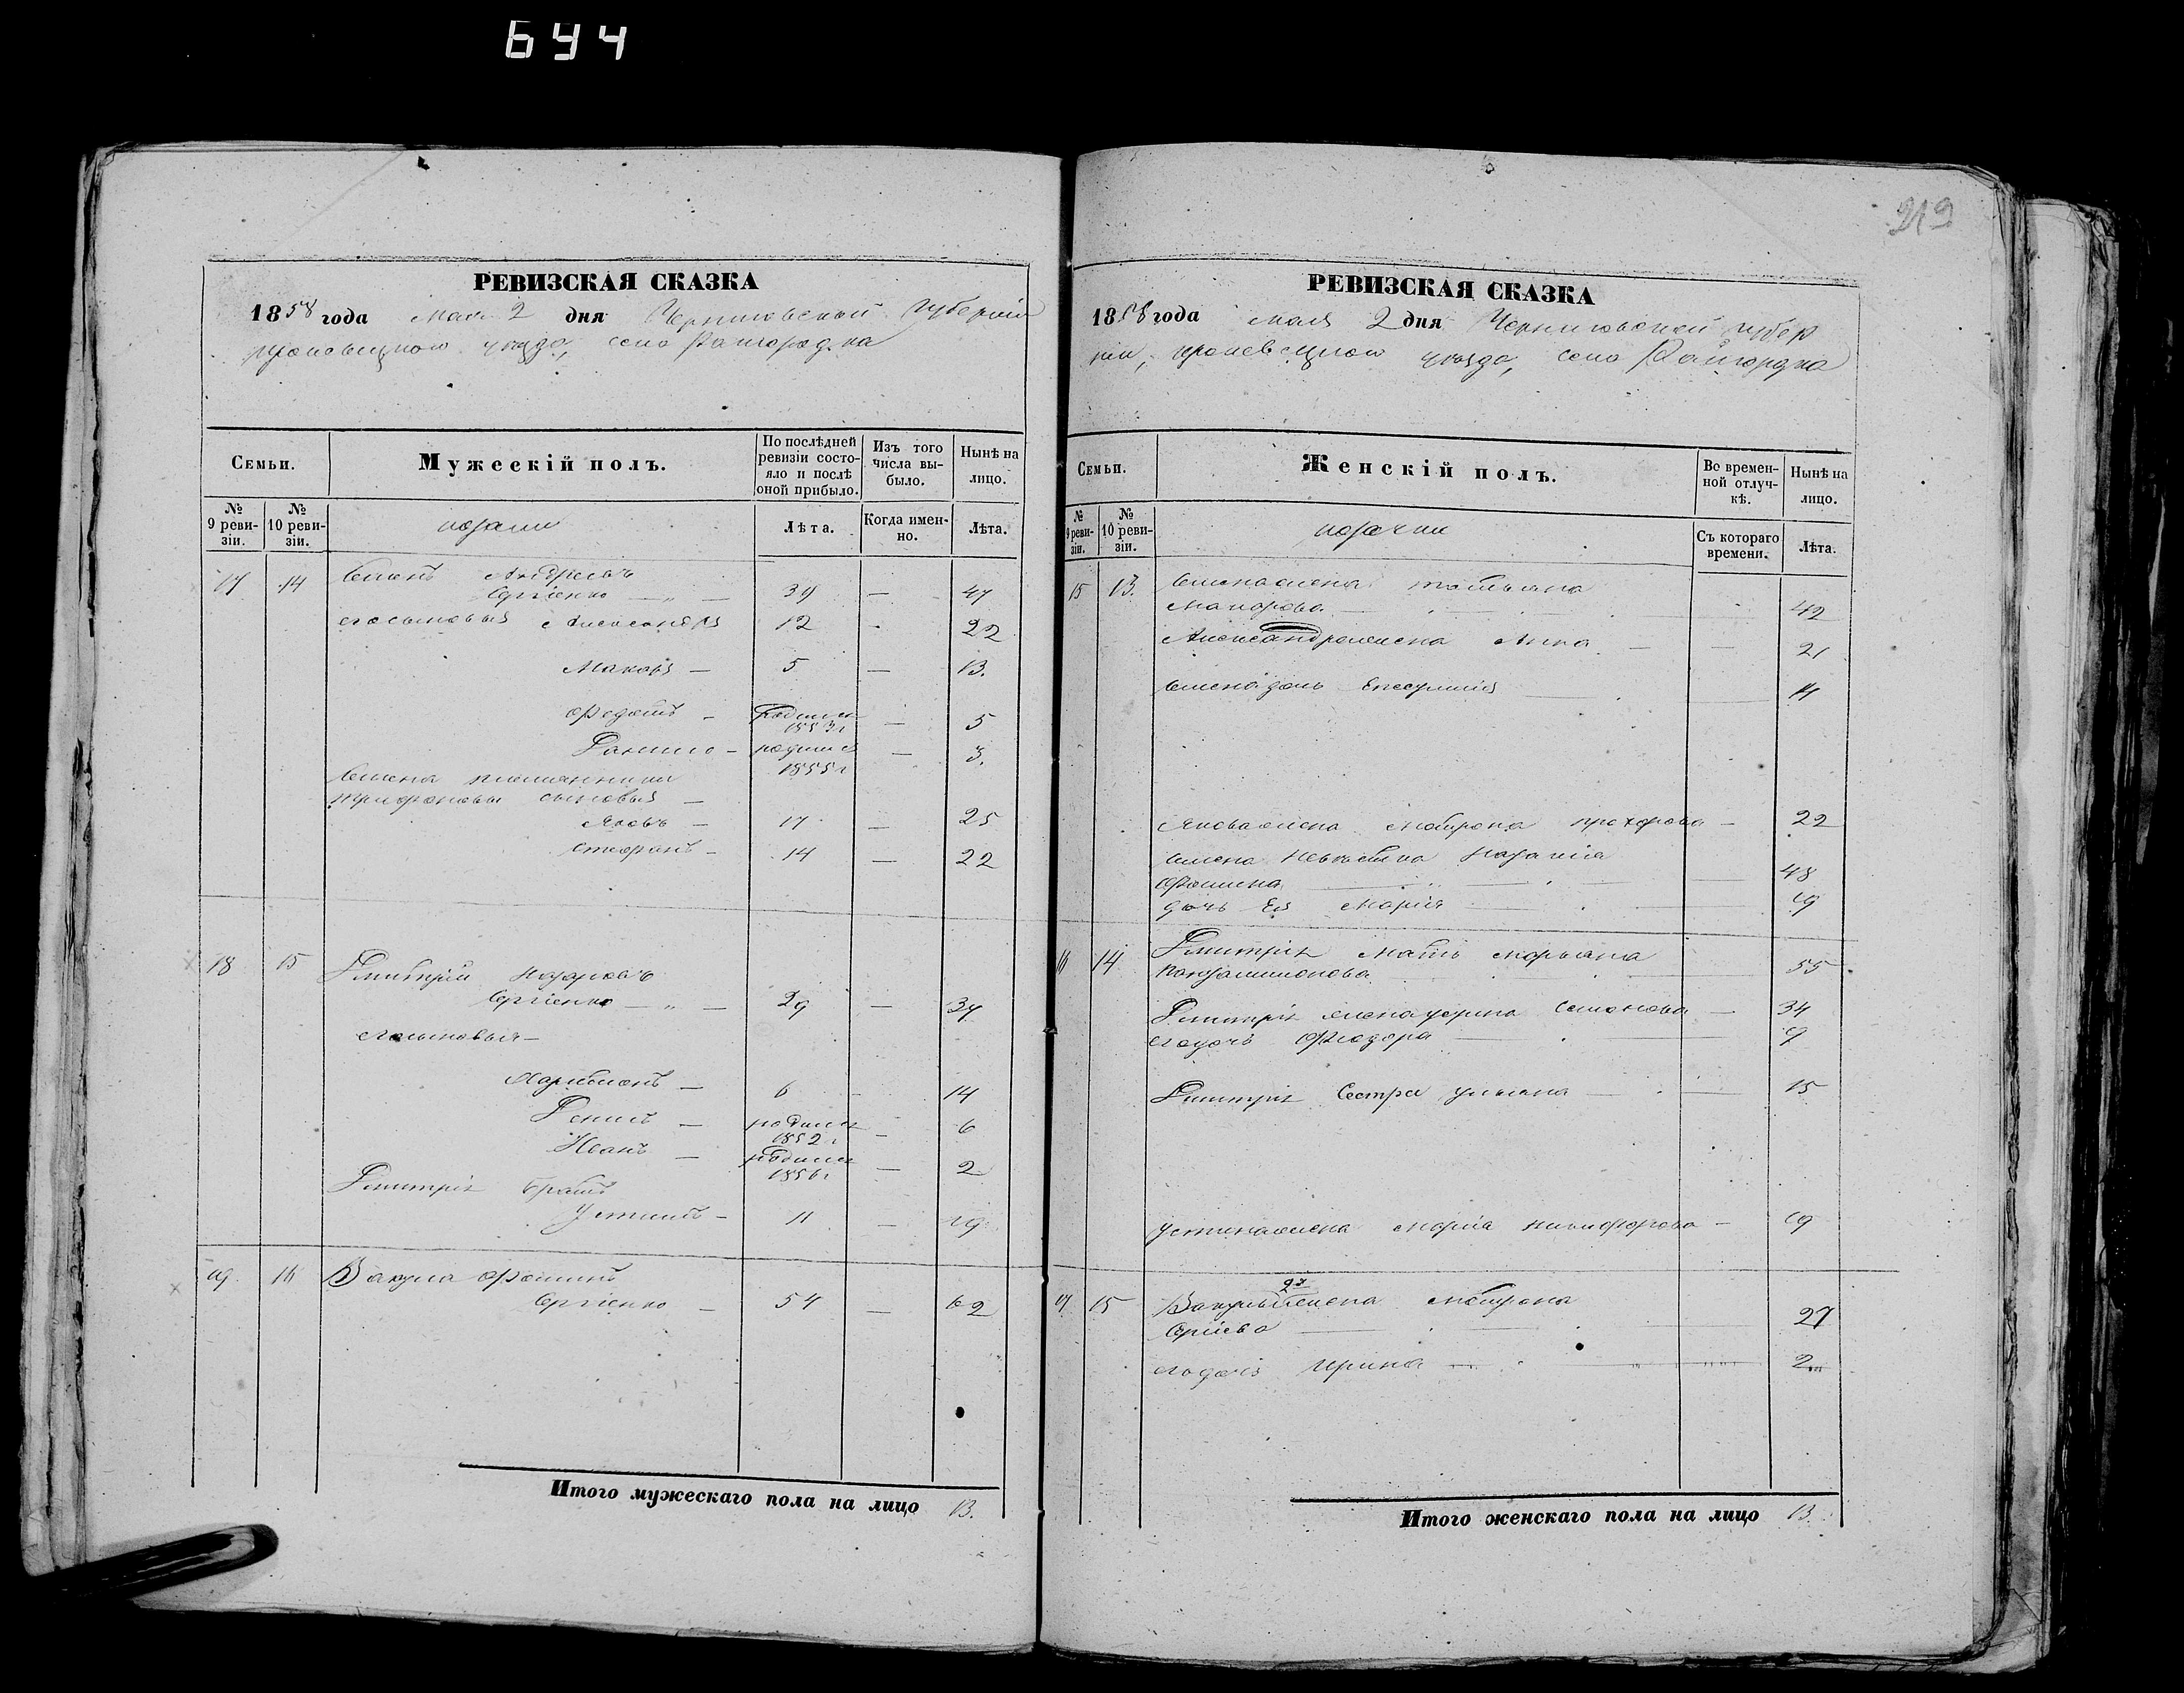 644
212
РЕВИЗСКАЯ СКАЗКА
1858 года Мая 2 дня Черниговской губернии
кролевецкого уезда, село Райгородка
Семьи.
Мужескій полъ.
По послѣдней ревизіи состояло и послѣ оной прибыло.
Изъ того числа выбыло.
Нынѣ на лицо.
№ 9 ревизіи.
№ 10 ревизіи.
козаки
Лѣта.
Когда именно.
Лѣта.
17 14 Семенъ Андреевъ
Сергіенко — „ — 39 — 47
его сыновья Александръ 12 22
Макаръ — 5 — 13.
Федотъ — родился 1853 г — 5
Данило — родился 1855 г — 3.
Семена племянники
Трифоновы сыновья —
Яковъ — 17 — 25
Стефанъ — 14 — 22
18 15 Дмитрій Назаровъ
Сергіенко — „ — 29 — 37
его сыновья —
Харитонъ — 6 - 14
Денисъ — родился 1852 г — 6
Иванъ — родился 1856 г — 2
Дмитрія братъ
Устинъ — 11 — 19
19 16 Вакула Фоминъ
Сергіенко — 54 — 62
Итого мужескаго пола на лицо 13.
РЕВИЗСКАЯ СКАЗКА
1858 года мая 2 дня Черниговской губер
нии, кролевецкого уезда, село Райгородка
Семьи.
Женскій полъ.
Во временной отлучкѣ.
Нынѣ на лицо.
№ 9 ревизіи.
№ 10 ревизіи.
козачки
Съ котораго времени.
Лѣта.
15 13. Семена жена татьяна
Макарова — 42
Александра жена Анна — — 21
Семена дочь 11
Якова жена Мотрона прохорова — 22
Семена невестка
Фомина — 48
дочь Ея Марія — 19
16 14 Дмитрія мать Марьяна
Пантелимонова 55
Дмитрія жена Семенова — 34
его дочь Феодора — 9
Дмитрія Сестра ульяна — 15
Устина жена Марія никифорова — 19
17 15 Вакулы жена Мотрона
Сергіева — 27
его дочь Ирина — 2
Итого женскаго пола на лицо 13.